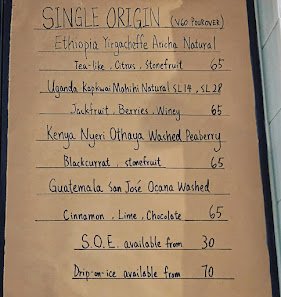 SINGLE ORIGIN (V60 POUROVER)
Ethiopia Yirgacheffe Aricha Natural
Tea-like, Citrus, Stonefruit 65
Uganda Kapkwai Mohihi Natural SL14, SL28
Jackfruit, Berries, Winey 65
Kenya Nyeri Othaya Washed Peaberry
Blackcurrat, stonefruit 65
Guatemala San José Ocana Washed
Cinnamon, Lime, Chocolate 65
S.O.E. available from 30
Drip-on-ice available from 70